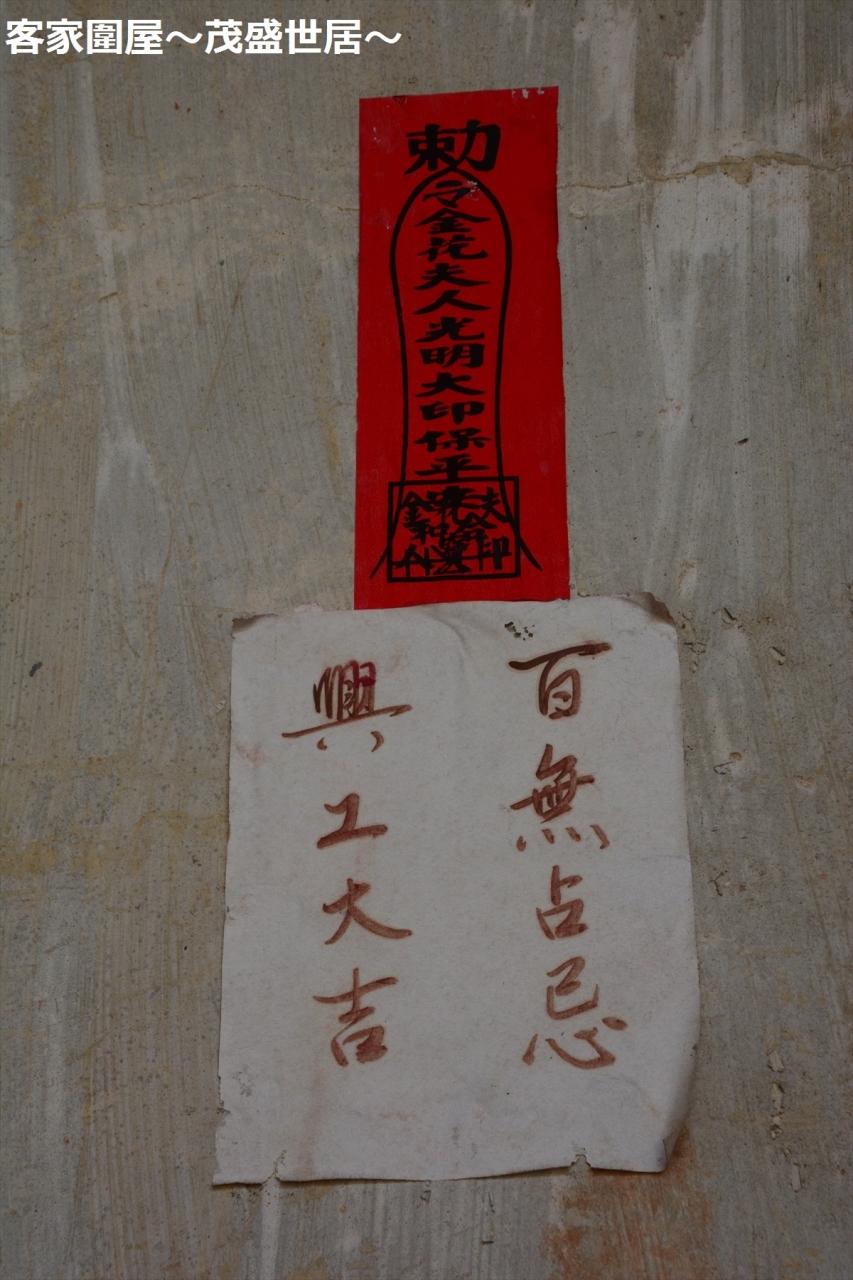 客家圍屋～茂盛世居～
勅
令金花夫人光明大印保平
百無占忌
興工大吉